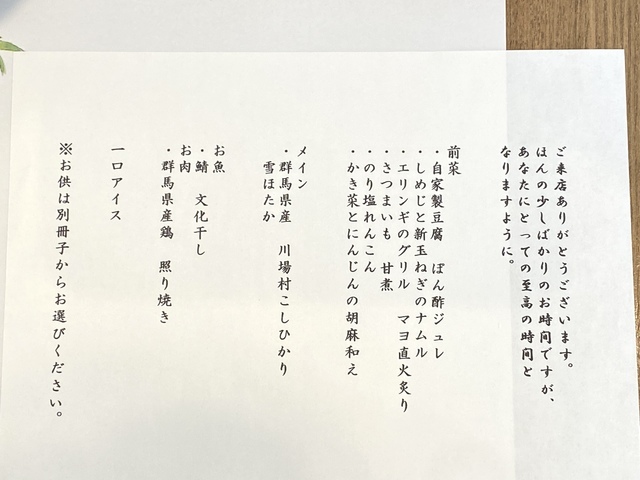 ご来店ありがとうございます。
ほんの少しばかりのお時間ですが、
あなたにとっての至高の時間と
なりますように。
前菜
・自家製豆腐　ぽん酢ジュレ
・しめじと新玉ねぎのナムル
・エリンギのグリル　マヨ直火炙り
・さつまいも　甘煮
・のり塩れんこん
・かき菜とにんじんの胡麻和え
メイン
・群馬県産　川場村こしひかり
雪ほたか
お魚
・鯖　文化干し
お肉
・群馬県産鶏　照り焼き
一口アイス
※お供は別冊子からお選びください。